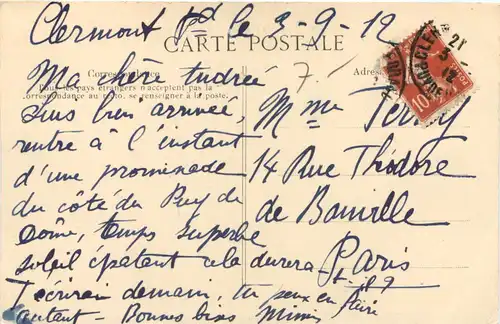 Clermont Fd le 3-9-12
CARTE POSTALE
Correspondance
Tous les pays étrangers n'acceptent pas la
correspondance au recto, se renseigner à la poste.
Adresse
7.
Ma chère Andrée
Suis bien arrivée,
rentre à l'instant
d'une promenade
du côté du Puy de
Dôme, temps superbe
soleil épatant cela durera-t-il ?
T'écrirai demain, tu peux en faire
autant - Bonnes bises Mimi
Mme
14 Rue Théodore
de Banville
Paris
10